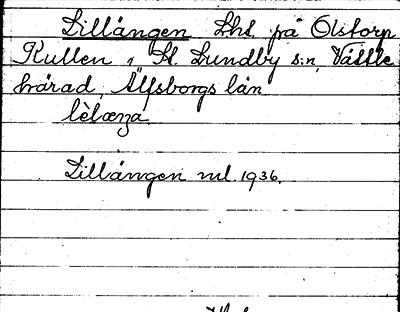 Lillängen Lht. på Olstorp
Kullen i St. Lundby s:n, Vättle
härad, Älfsborgs län
lèlæŋa
Lillängen ml. 1936.